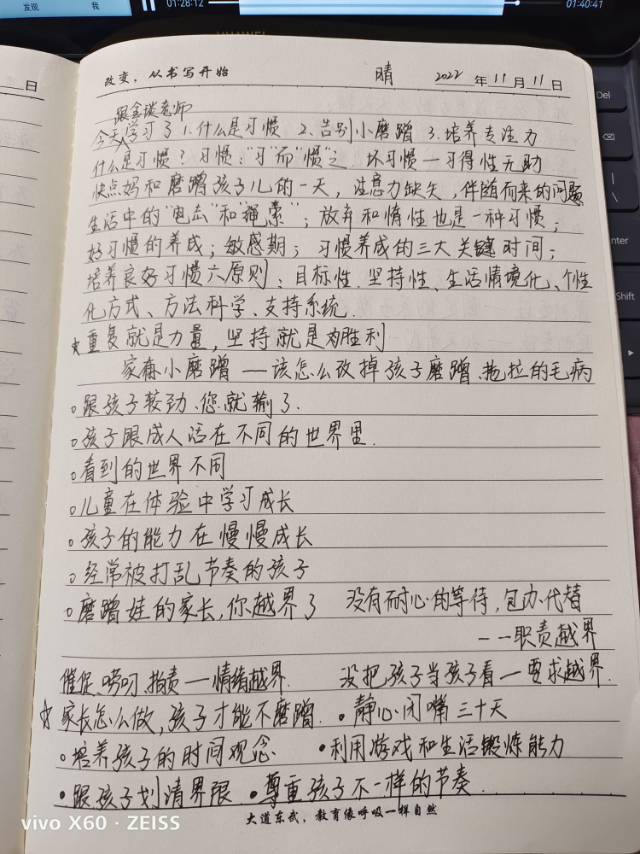 发现
我
01:28:12
01:40:41
HUAWEI
日
改变，从书写开始 晴 2022年11月11日
跟金瑛老师
今天学习了 1.什么是习惯 2.告别小磨蹭 3.培养专注力
什么是习惯？习惯："习"而"惯"之 坏习惯—习得性无助
快点妈和磨蹭孩子儿的一天，注意力缺失，伴随而来的问题
生活中的"电击"和"绳索"；放弃和惰性也是一种习惯；
好习惯的养成；敏感期；习惯养成的三大关键时间；
培养良好习惯六原则：目标性、坚持性、生活情境化、个性
化方式、方法科学、支持系统.
☆重复就是力量，坚持就是为胜利
家有小磨蹭—该怎么改掉孩子磨蹭、拖拉的毛病
跟孩子较劲、您就输了.
孩子跟成人活在不同的世界里.
看到的世界不同
儿童在体验中学习成长
孩子的能力在慢慢成长
经常被打乱节奏的孩子
磨蹭娃的家长，你越界了 没有耐心的等待，包办代替
——职责越界
催促、唠叨、指责—情绪越界. 没把孩子当孩子看—要求越界.
☆家长怎么做，孩子才能不磨蹭. •静心闭嘴三十天
•培养孩子的时间观念 •利用游戏和生活锻炼能力
•跟孩子划清界限 •尊重孩子不一样的节奏.
大道东武，教育像呼吸一样自然
vivo X60 · ZEISS
Enter
Shift
Ctrl